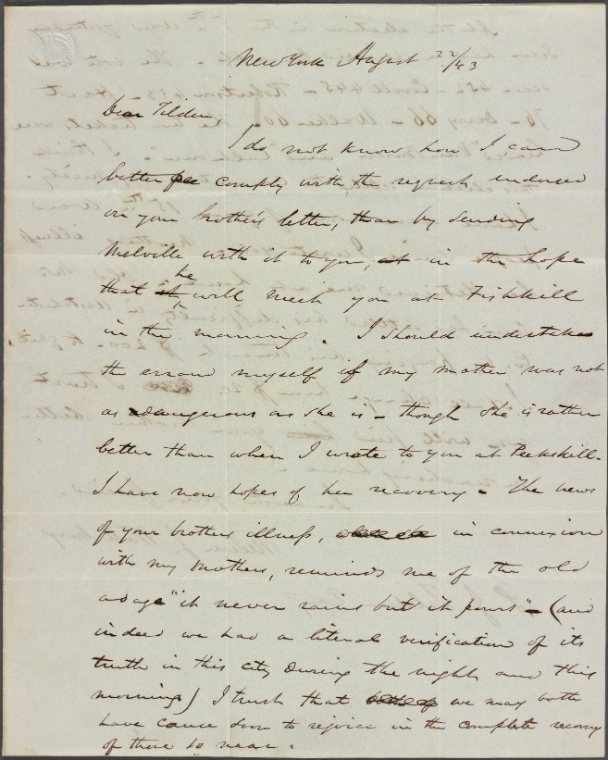 New York August 22/43
Dear Tilden,
I do not know how I can
better comply with the request endorsed
on your brother's letter, than by sending
Melville with it to you, at in the hope
that he will meet you at Fishkill
in the morning. I should undertake
the errand myself if my mother was not
as dangerous as she is - though she is rather
better than when I wrote to you at Peekskill.
I have now hopes of her recovery - The news
of your brothers illness, in connexion
with my mothers, reminds me of the old
adage "it never rains but it pours" - (and
indeed we had a literal verification of its
truth in this city during the night and this
morning) I trust that we may both
have cause soon to rejoice in the complete recovery
of those so near.